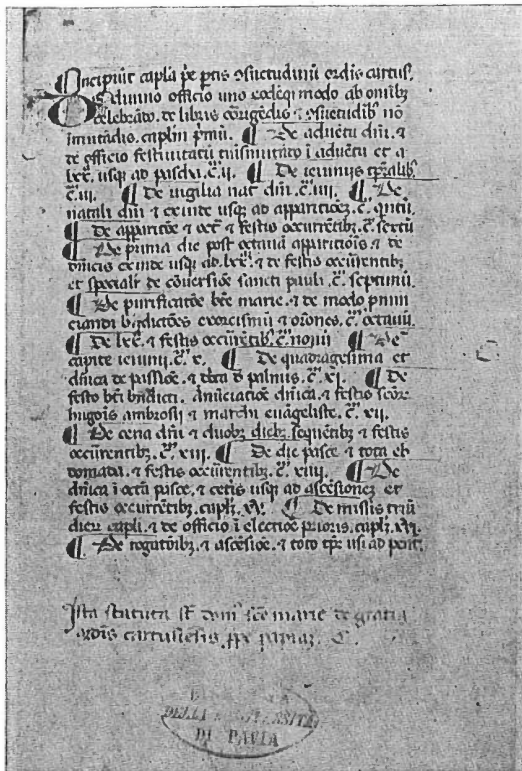 Incipiūt capl̄a p̄e ptis ↄsuetudinū ordīs cartus̄.
De diuino officio uno eodēq̨ modo ab omībꝫ
celebrādo. de libris corrigēdis ⁊ ↄsuetudibꝫ nō
imutādis. caplm̄ pͥmū. ¶ De aduētu dn̄i. ⁊
de officio festiuitatū ī aduētu et a
lxx̄. usq̨ ad pascha. c̄. ii. ¶ De ieiuniis tꝑalibꝫ
c̄. iii. ¶ De uigilia nat̄ dn̄i. c̄. iiii. ¶ De
natali dn̄i ⁊ exinde usq̨ ad apparitiōeꝫ. c̄. quītū.
¶ De apparitiōe ⁊ oct̄ ⁊ festis occurrētibꝫ. c̄. sextū
¶ De prima die post octauā apparitiōis ⁊ de
dn̄icis exinde usq̨ ad. lxx̄. ⁊ de festis occurrētibꝫ
et specialit̄ de cōuersiōe sancti pauli. c̄. septimū.
¶ De purificatōe bt̄e marie. ⁊ de modo pͥmū
ciandi bn̄dictōes exorcismū ⁊ orōnes. c̄. octauū.
¶ De lxx̄. ⁊ festis occurrētibꝫ. c̄. nonū ¶ De
capite ieiunii. c̄. x. ¶ De quadragesima et
dn̄ica de passiōe. ⁊ dn̄ica ī palmis. c̄. xi. ¶ De
festo bt̄i bn̄dicti. Anūciatiōe dn̄ica. ⁊ festis scōꝝ
hugōis ambrosij ⁊ marchi euāgeliste. c̄. xii.
¶ De cena dn̄i ⁊ duobꝫ diebꝫ sequētibꝫ ⁊ festis
occurrentibꝫ. c̄. xiii. ¶ De die pasce ⁊ tota eb
domada. ⁊ festis occurrentibꝫ. c̄. xiiii. ¶ De
dn̄ica ī octā pasce. ⁊ cetis usq̨ ad ascēsioneꝫ et
festis occurrētibꝫ. capl̄ꝫ. xv. ¶ De missis triū
dierꝝ capl̄i. ⁊ de officio ī electiōe prioris. capl̄ꝫ. xvi.
¶ De rogatōibꝫ ⁊ ascēsiōe. ⁊ toto tꝑe usq̨ ad pent̄.
Ista statuta st̄ dom̄ sc̄e marie de gratia
ordīs cartusiēsis. ꝓpe papiaꝫ. C.
DELLA UNIVERSITÀ
DI PAVIA